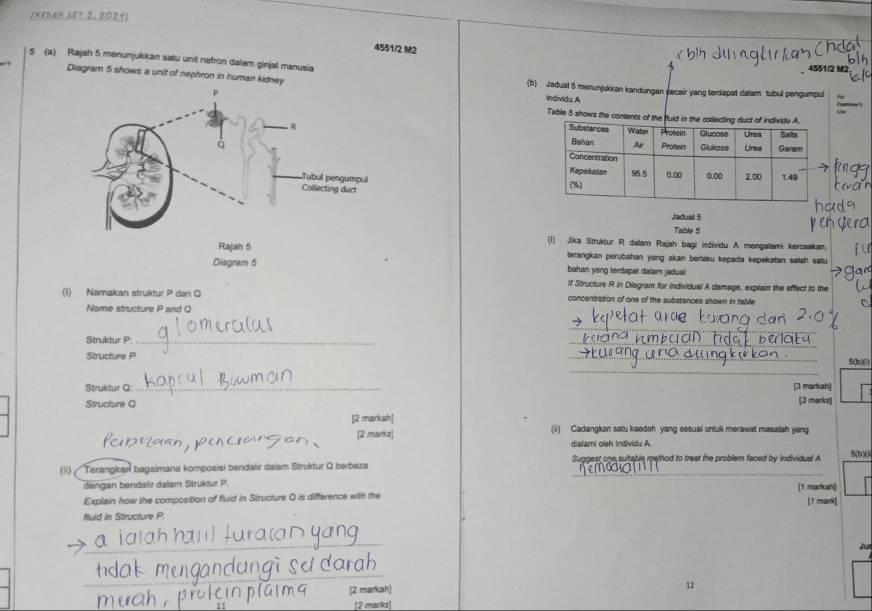 [KEDAH SET 2, 2021]
4551/2 M2
5 (a) Rajah 5 menunjukkan satu unit nefron dalam ginjal manusia
Diagram 5 shows a unit of nephron in human kidney
P
R
Q
Tubul pengumpul
Collecting duct
Rajah 5
Diagram 5
(i) Namakan struktur P dan Q
Name structure P and Q
Struktur P: glomeralus
Structure P
Struktur Q: kapsul Bowman
Structure Q
[2 markah]
[2 marks]
(ii) Terangkan bagaimana komposisi bendalir dalam Struktur Q berbeza
dengan bendalir dalam Struktur P.
Explain how the composition of fluid in Structure Q is difference with the
fluid in Structure P.
→ a ialah hasil turasan yang
tidak mengandungi sel darah
merah, protein plasma
[2 markah]
[2 marks]
11
4551/2 M2
(b) Jadual 5 menunjukkan kandungan cecair yang terdapat dalam tubul pengumpul
individu A
Table 5 shows the contents of the fluid in the collecting duct of individu A.
Substances Water Protein Glucose Urea Salts
Bahan Air Protein Glukosa Urea Garam
Concentration
Kepekatan 95.5 0.00 0.00 2.00 1.49
(%)
Jadual 5
Table 5
(i) Jika Struktur R dalam Rajah bagi individu A mengalami kerosakan,
terangkan perubahan yang akan berlaku kepada kepekatan salah satu
bahan yang terdapat dalam jadual
If Structure R in Diagram for individual A damage, explain the effect to the
concentration of one of the substances shown in table
→ kepekatan urea kurang dan 2.0%
kerana rembesan tidak berlaku
→ kurang urea disingkirkan.
5(b)(i)
[3 markah]
[3 marks]
(ii) Cadangkan satu kaedah yang sesuai untuk merawat masalah yang
dialami oleh individu A.
Suggest one suitable method to treat the problem faced by individual A
Hemodialisis
[1 markah]
[1 mark]
12